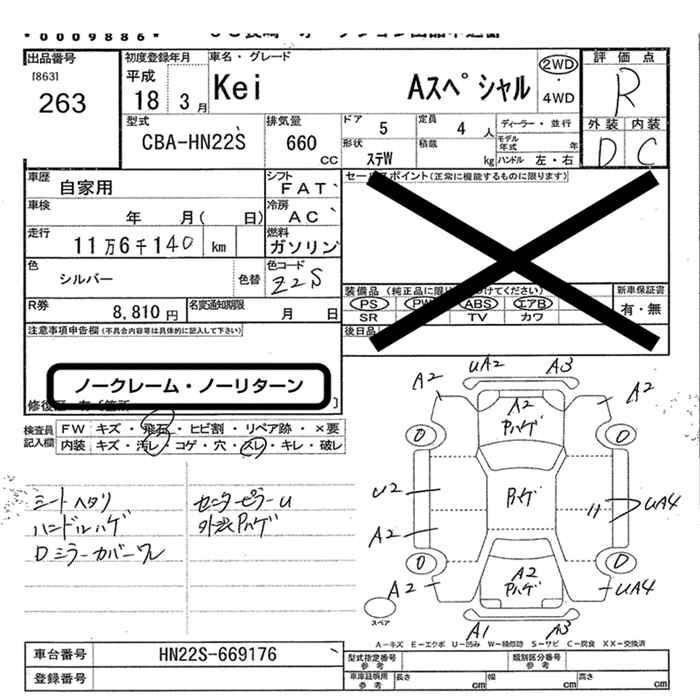 *0009886*
出品番号
[863]
263
初度登録年月
平成
18 3月
車名・グレード
Kei Aスペシャル
2WD
・
4WD
評価点
R
外装 内装
D C
型式
CBA-HN22S
排気量
660
CC
ドア
5
定員
4 人
形状
ステW
積載
kg
ディーラー・並行
モデル年式 年
ハンドル 左・右
車歴
自家用
シフト
FAT
車検
年 月( 日)
冷房
AC
走行
11万6千140 km
燃料
ガソリン
色
シルバー
色替
色コード
Z2S
R券
8,810 円
名変通知期限
月 日
セールスポイント(正常に機能するものに限ります)
装備品(純正品に限り
けてください)
PS PW ABS エアB
SR TV カワ
新車保証書
有・無
後日品
注意事項申告欄(不具合内容等は具体的に記入して下さい)
ノークレーム・ノーリターン
検査員
記入欄
FW キズ・飛石・ヒビ割・リペア跡・×要
内装 キズ・汚レ・コゲ・穴・スレ・キレ・破レ
シートヘタリ
ハンドルハゲ
Dミラーカバーワレ
センターピラーU
外装Pハゲ
A2 UA2 A3 A2
A2
Pハゲ
0 0
U2 Pハゲ 〃 UA4
A2
0 0
A2 A2
Pハゲ UA4
スペア
A1 A3
A−キズ E−エクボ U−凹み W−補修跡 S−サビ C−腐食 XX−交換済
車台番号
HN22S-669176
登録番号
型式指定番号
参考
類別区分番号
参考
車庫証明用
参考
長さ cm
幅 cm
高さ cm